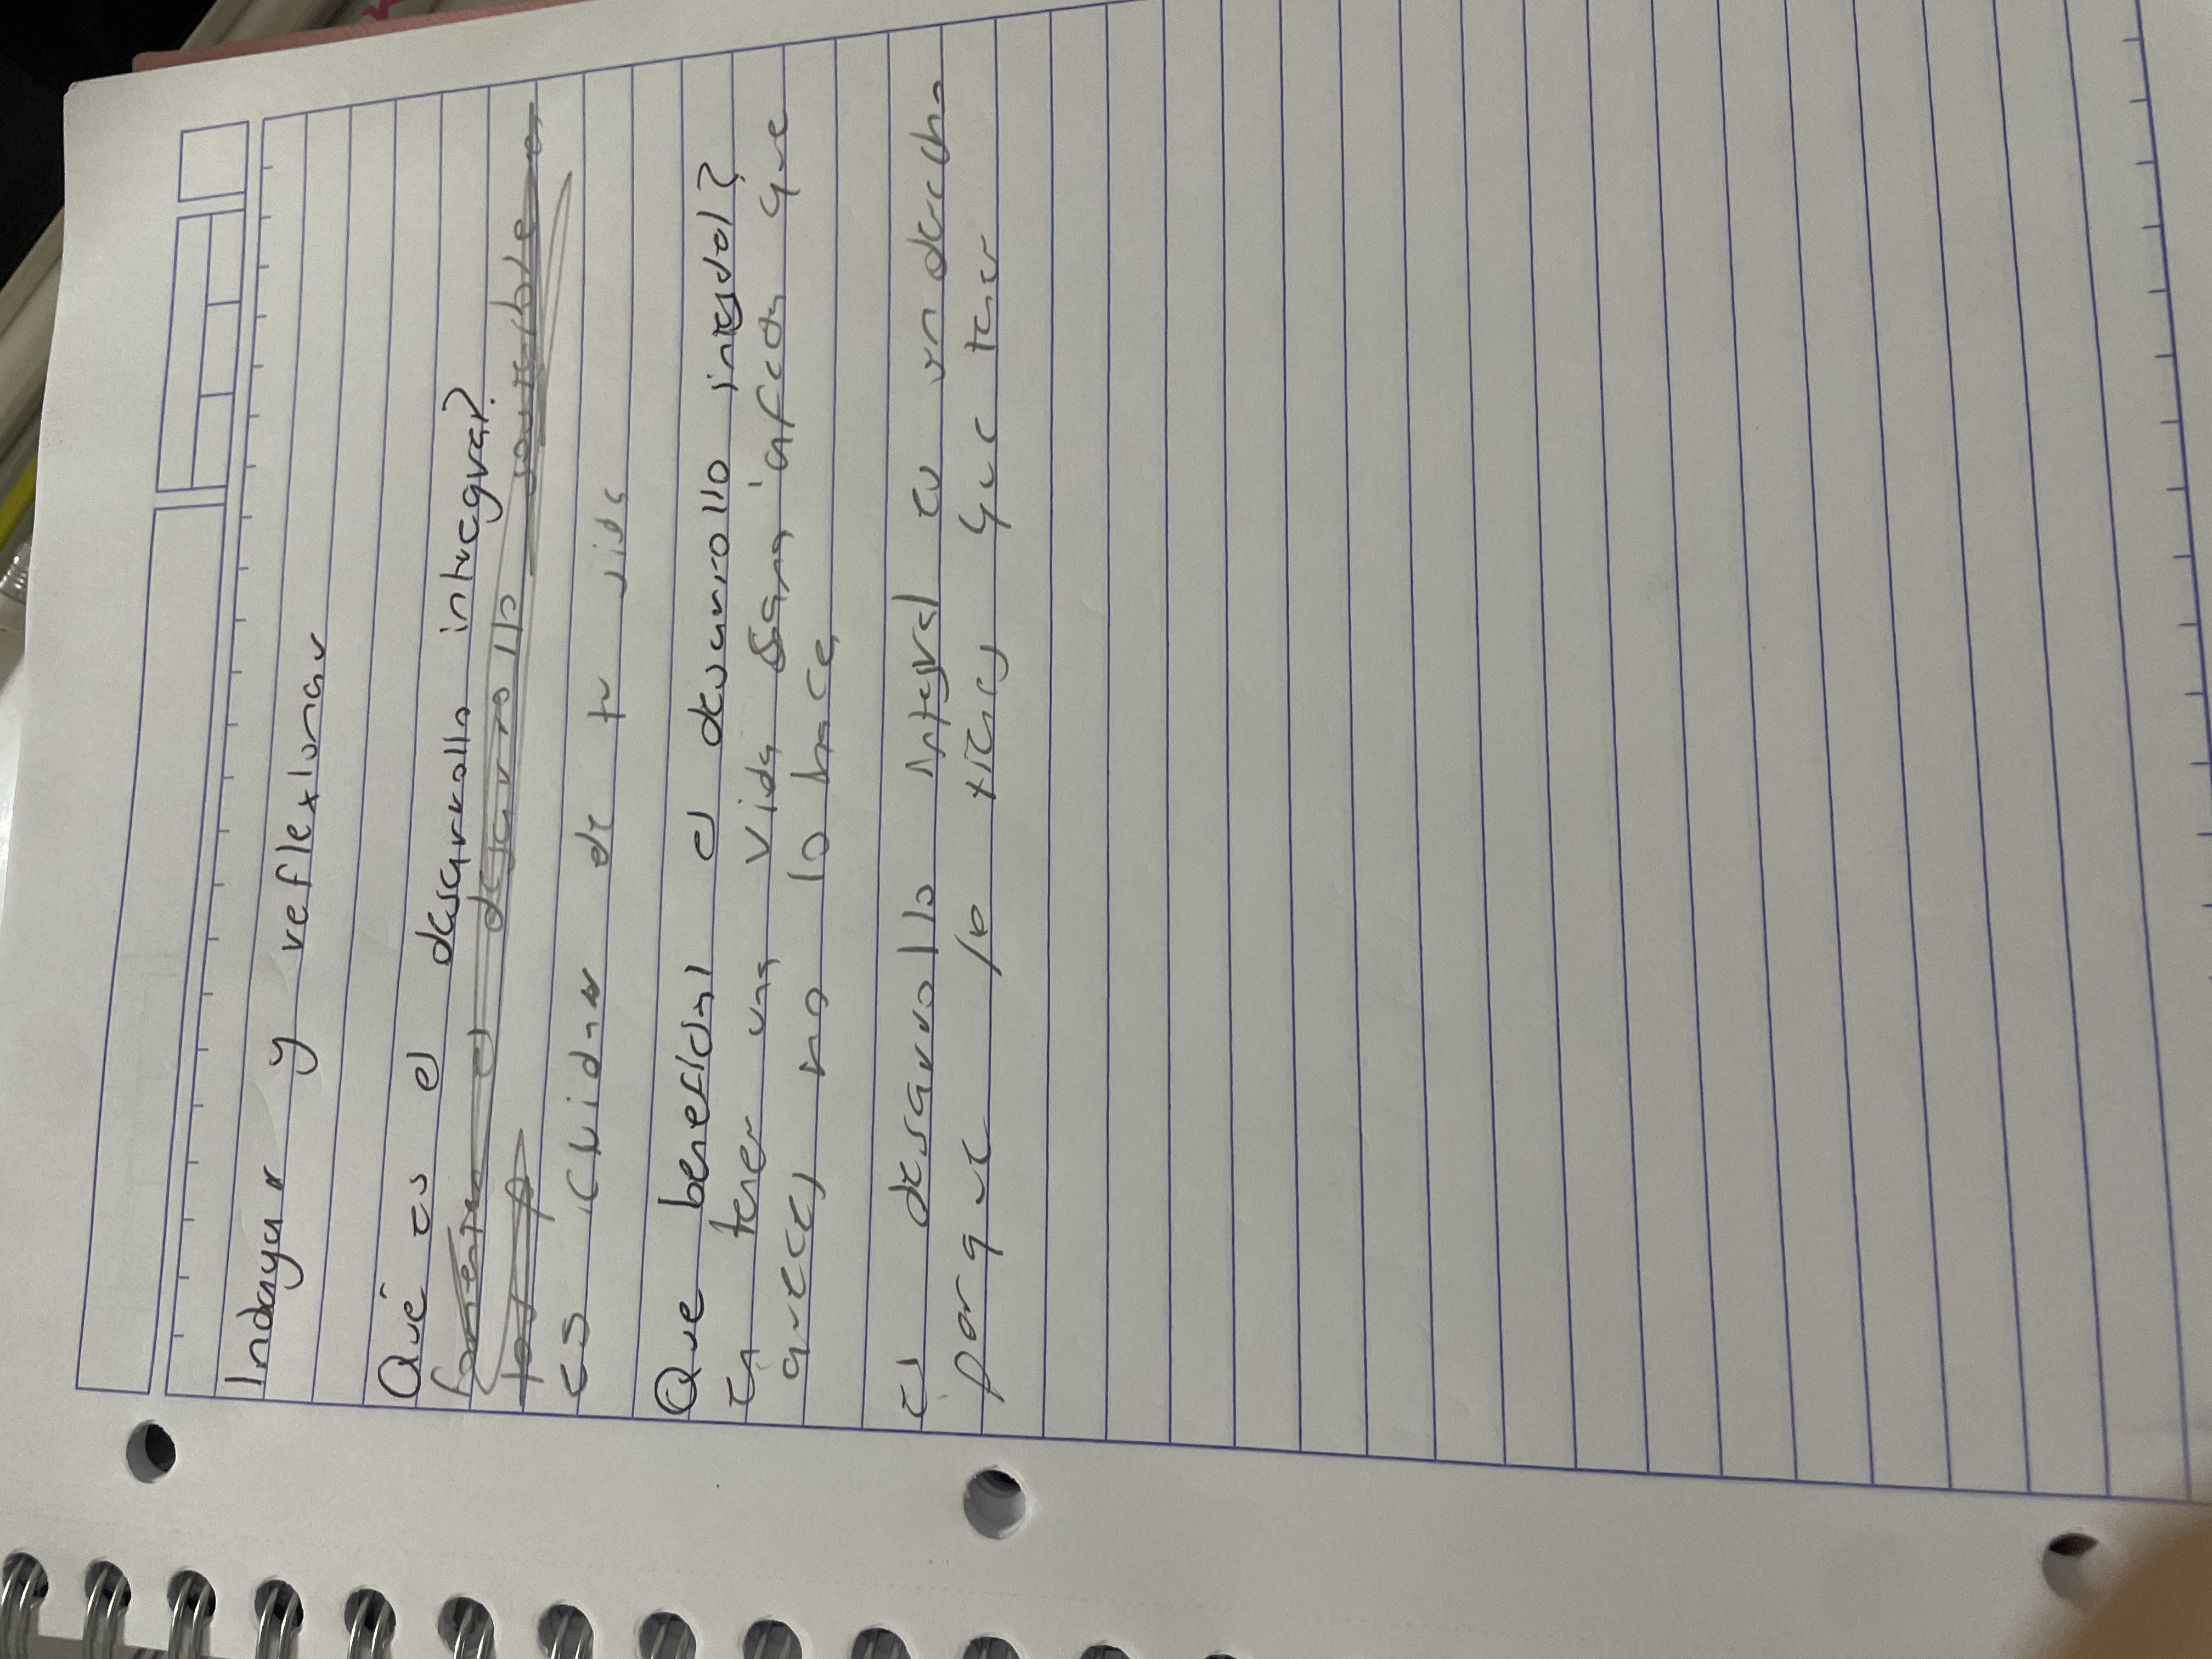 Indagar y reflexionar
Qué es el desarrollo integral?
fomentar el desarrollo
es cuidar de tu vida
Que beneficial el desarrollo integral?
en tener una vida sana
no lo hace
el desarrollo integral es un derecho
porque lo tienes que tener